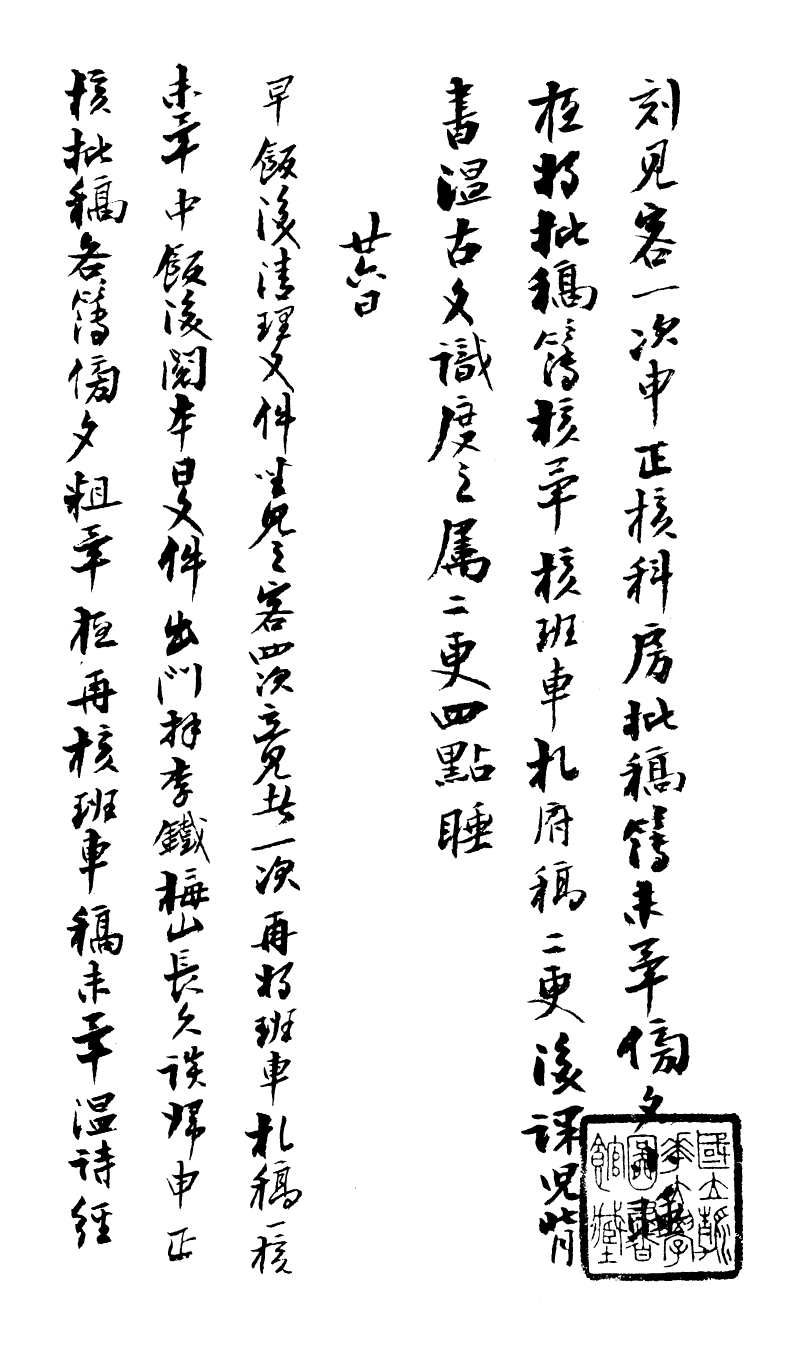 刻見客一次申正核科房批稿簿未畢傍夕小睡
夜將批稿簿核畢核班車札府稿二更後課兒背
書溫古文識度之屬二更四點睡
廿六日
早飯後清理文件坐見之客四次立見者一次再將班車札稿一核
未畢中飯後閱本日文件出門拜李鐵梅山長久談歸申正
核批稿各簿傍夕粗畢夜再核班車稿未畢溫詩經
國立
大學
圖書
館藏